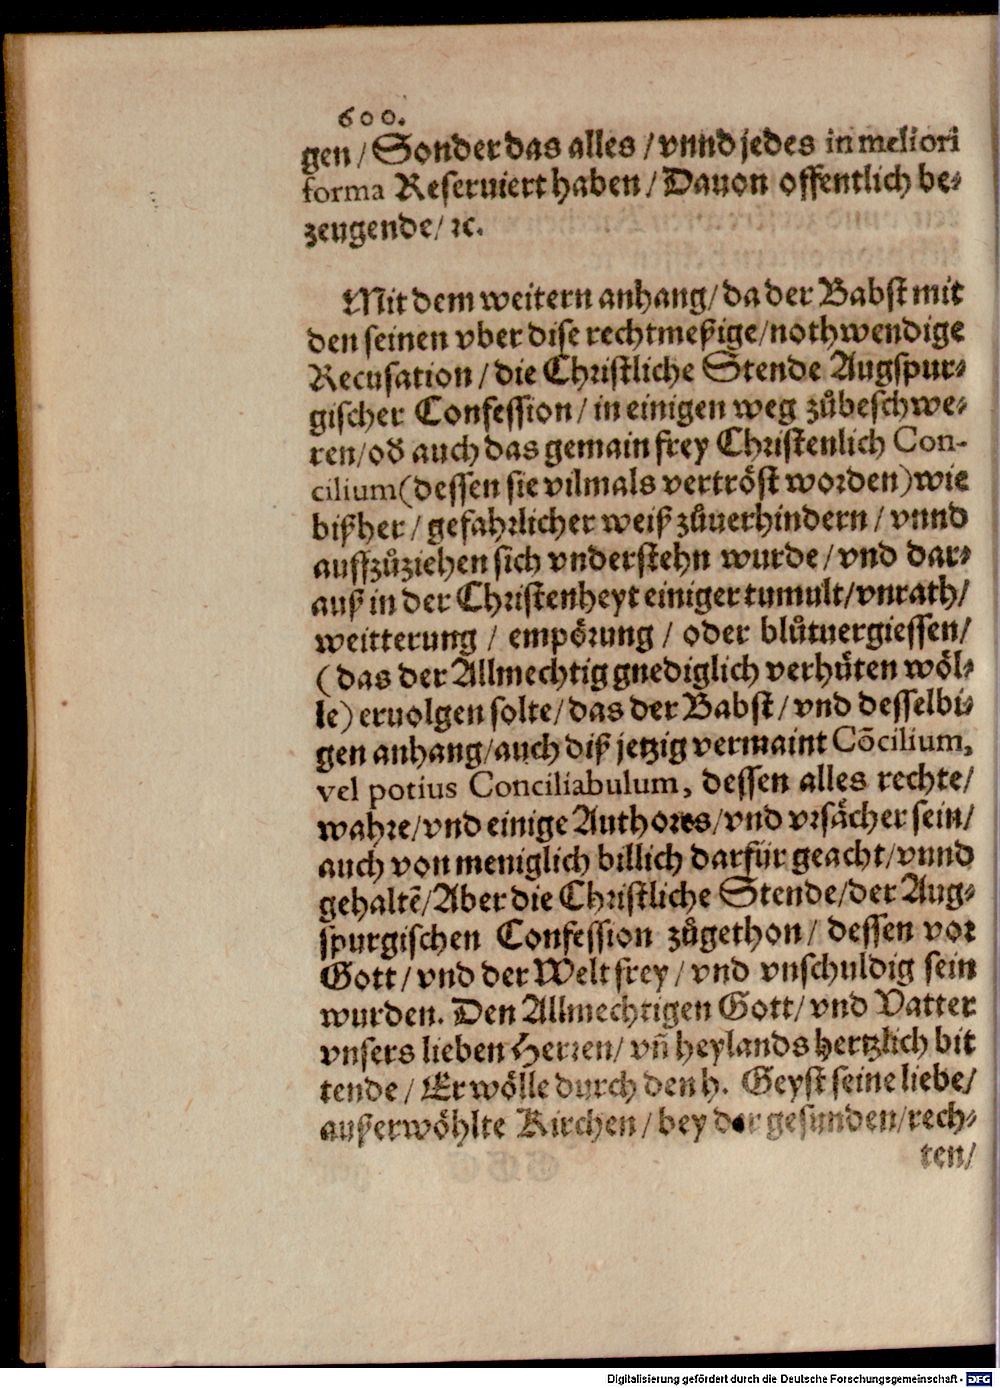 600.
gen / Sonder das alles / vnnd jedes in meliori
forma Reseruiert haben / Dauon offentlich be⸗
zeugende / ꝛc.
Mit dem weitern anhang / da der Babst mit
den seinen vber dise rechtmeßige / nothwendige
Recusation / die Christliche Stende Augspur⸗
gischer Confession / in einigen weg zůbeschwe⸗
ren / oď auch das gemain frey Christenlich Con-
cilium (dessen sie vilmals vertröst worden) wie
bißher / gefahrlicher weiß zůuerhindern / vnnd
auffzůziehen sich vnderstehn wurde / vnd dar⸗
auß in der Christenheyt einiger tumult / vnrath /
weitterung / empörung / oder blůtuergiessen /
(das der Allmechtig gnediglich verhüten wöl⸗
le) eruolgen solte / das der Babst / vnd desselbi⸗
gen anhang / auch diß jetzig vermaint Cōcilium,
vel potius Conciliabulum, dessen alles rechte /
wahre / vnd einige Authores / vnd vrsächer sein /
auch von meniglich billich darfür geacht / vnnd
gehaltē / Aber die Christliche Stende / der Aug⸗
spurgischen Confession zůgethon / dessen vor
Gott / vnd der Welt frey / vnd vnschuldig sein
wurden. Den Allmechtigen Gott / vnd Vatter
vnsers lieben Herren / vñ heylands hertzlich bit
tende / Er wölle durch den h. Geyst seine liebe /
außerwöhlte Kirchen / bey der gesunden / rech⸗
ten /
Digitalisierung gefördert durch die Deutsche Forschungsgemeinschaft - DFG